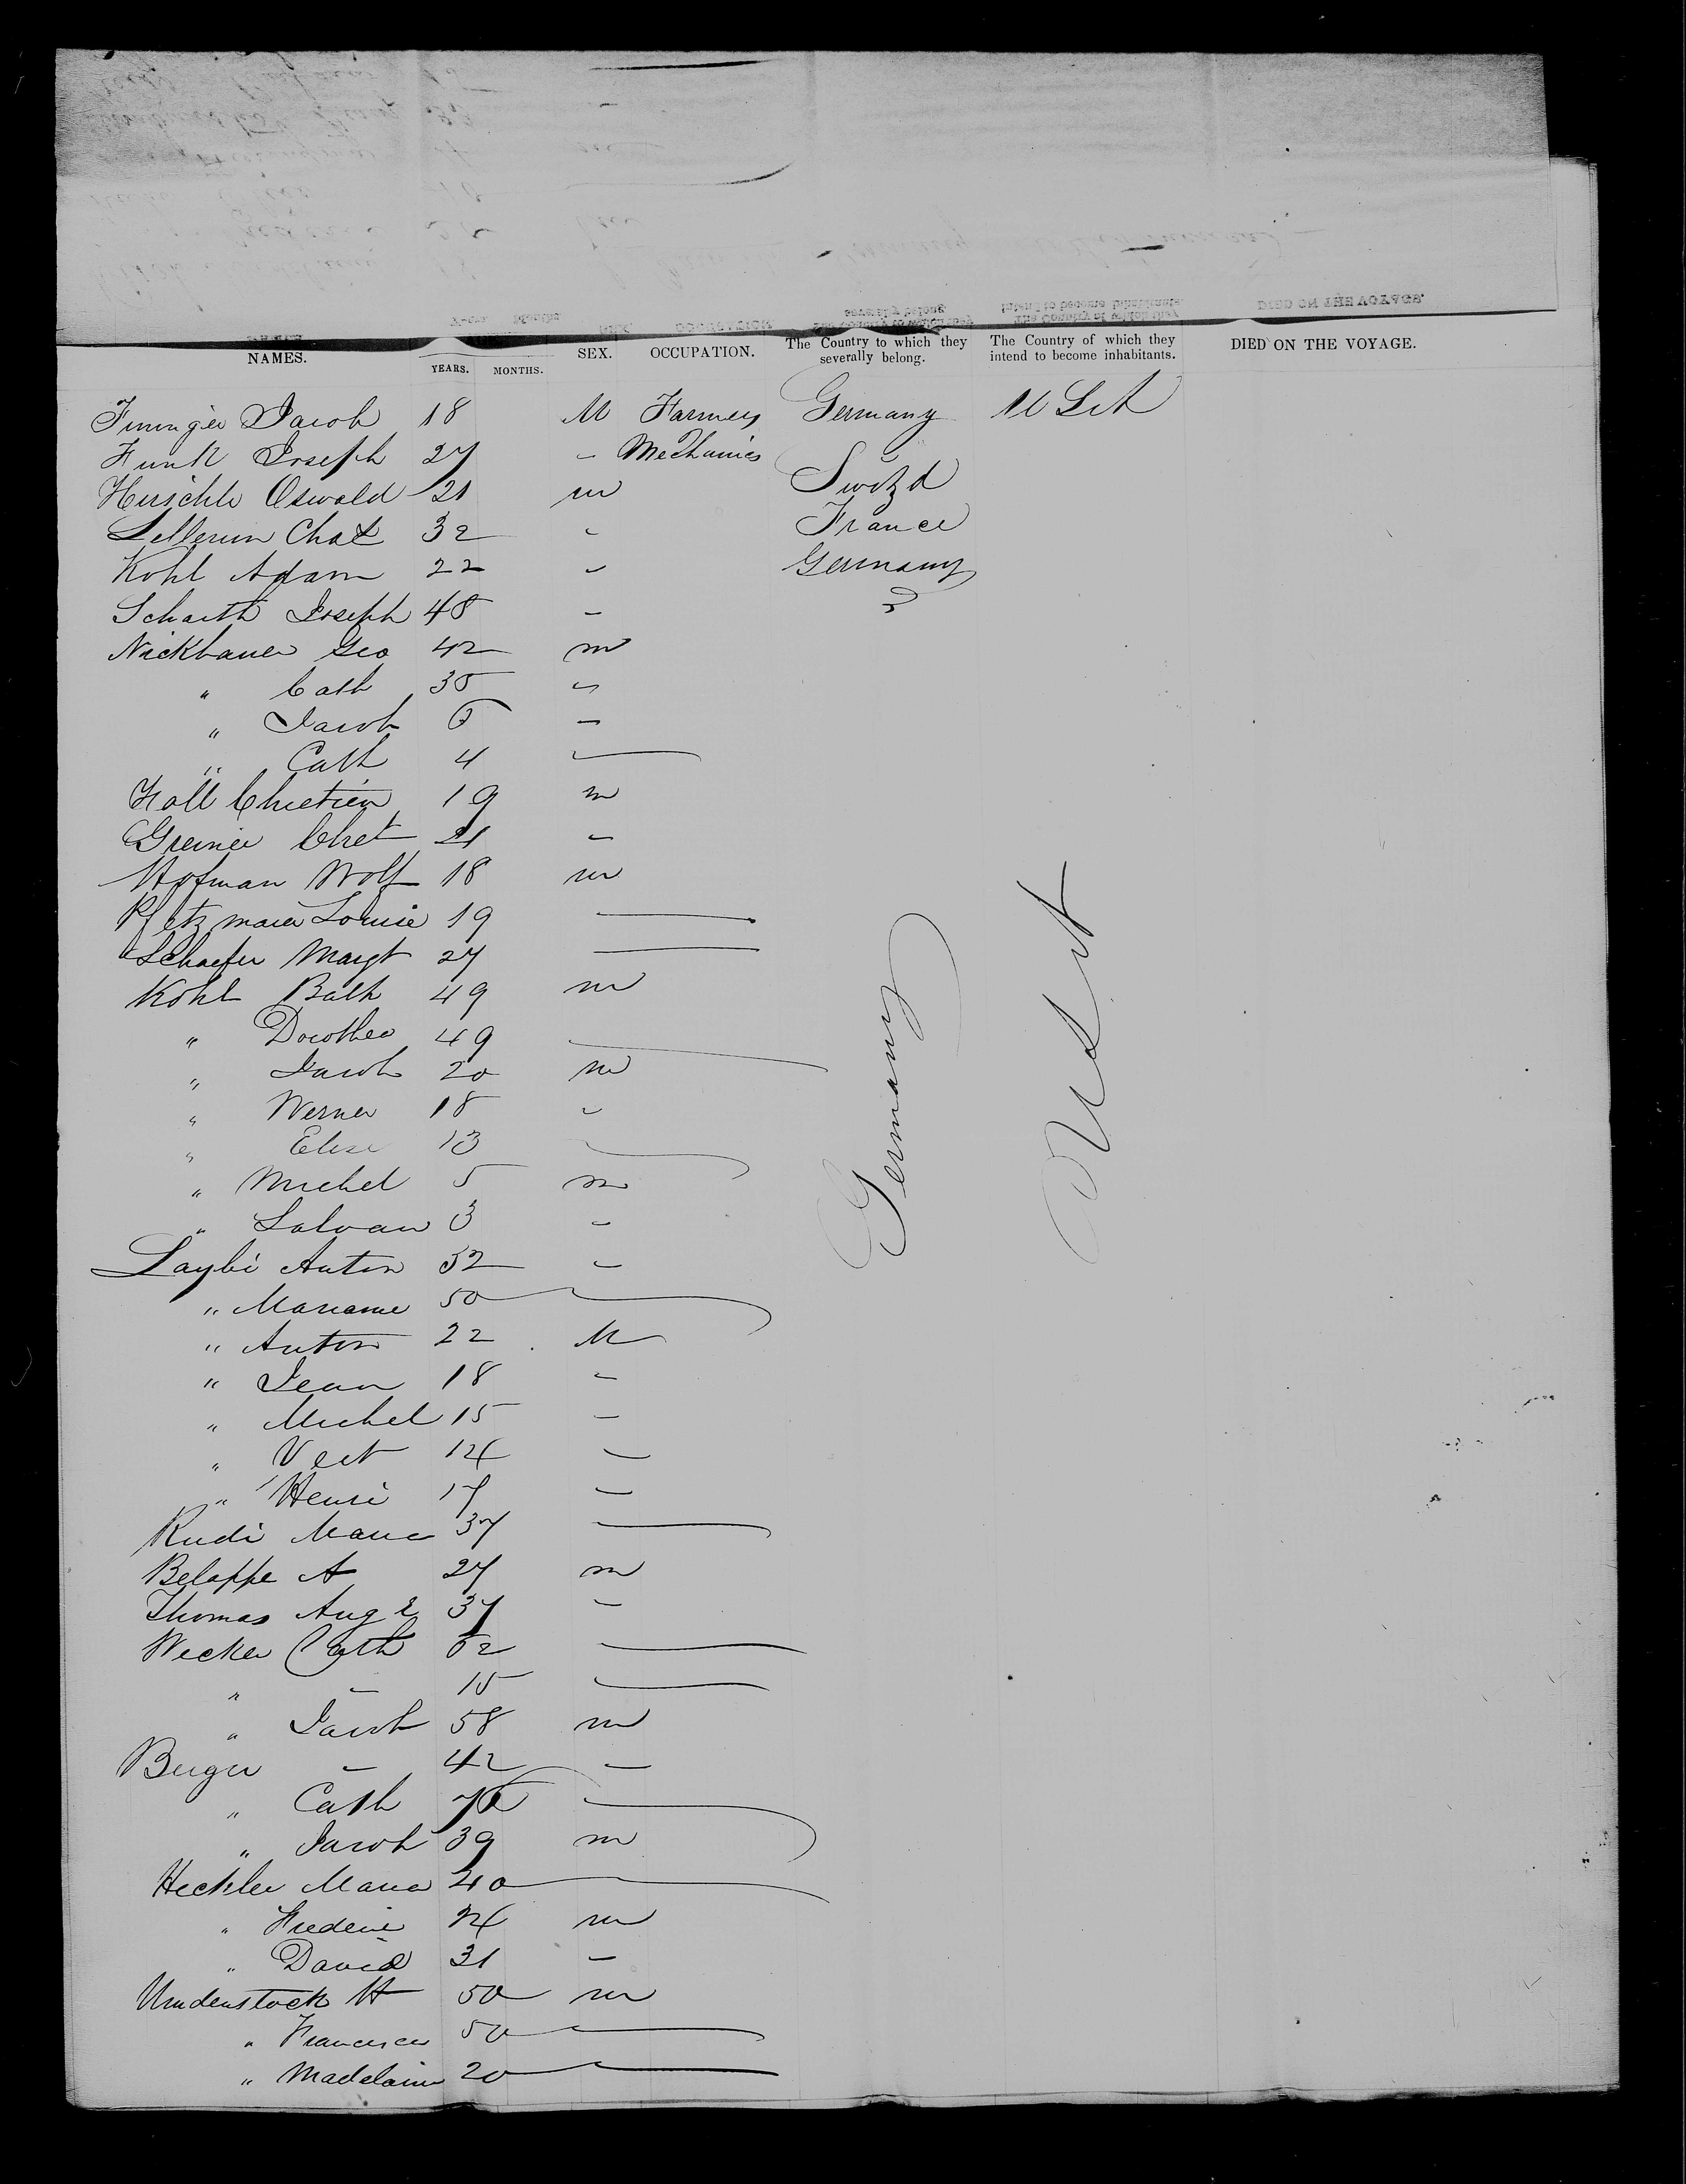 NAMES. YEARS. MONTHS. SEX. OCCUPATION. The Country to which they severally belong. The Country of which they intend to become inhabitants. DIED ON THE VOYAGE.
Jacob 18 M Farmers Germany U S A
Funk Joseph 27 - Mechanics
Oswald 21 m Switzd
Chas 32 " France
Kohl Adam 22 " Germany
Joseph 48 -
Nickbauer Geo 42 m
" Cath 35 "
" Jacob 6 -
" Cath 4
Chretien 19 m
Greiner Chret 21 -
Hofman Wolf 18 m
Pfetzmaier Louise 19
Schaefer Margt 27
Kohl Balth 49 m
" Dorothea 49
" Jacob 20 m
" Werner 18 "
" Elise 13
" Michel 5 m
" 3 -
Laybi Anton 52 -
" Marianne 50
" Anton 22 M
" Jean 18 -
" Michel 15 -
" Veit 14 -
" Henri 17 -
Rudi Maria 37
Belappe A 27 m
Thomas Aug 37 -
Wecker Cath 52
" - 15
" Jacob 58 m
Berger - 42 -
" Cath
" Jacob 39 m
Heckler Maria 40
" Frederic 24 m
" David 31 -
Undenstock H 50 m
" Francisca 50
" Madelaine 20
Germany
U S A